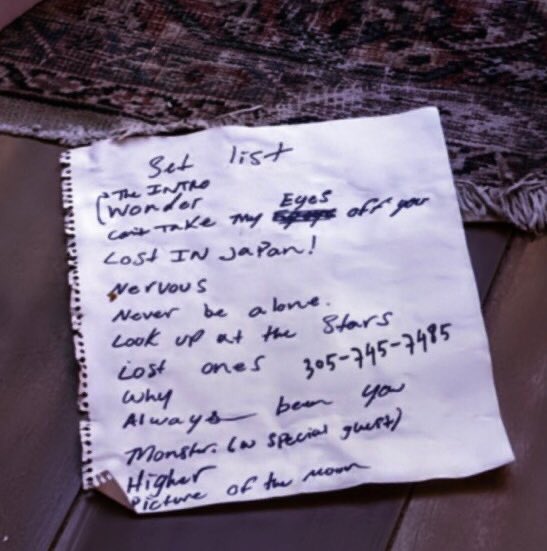 Set list
"The INTRO
(Wonder
Can't Take my Eyes off you
Lost IN Japan!
Nervous
Never be alone.
Look up at the Stars
Lost ones 305-745-7485
Why
Always been you
Monster. (w special guest)
Higher
Picture of the moon